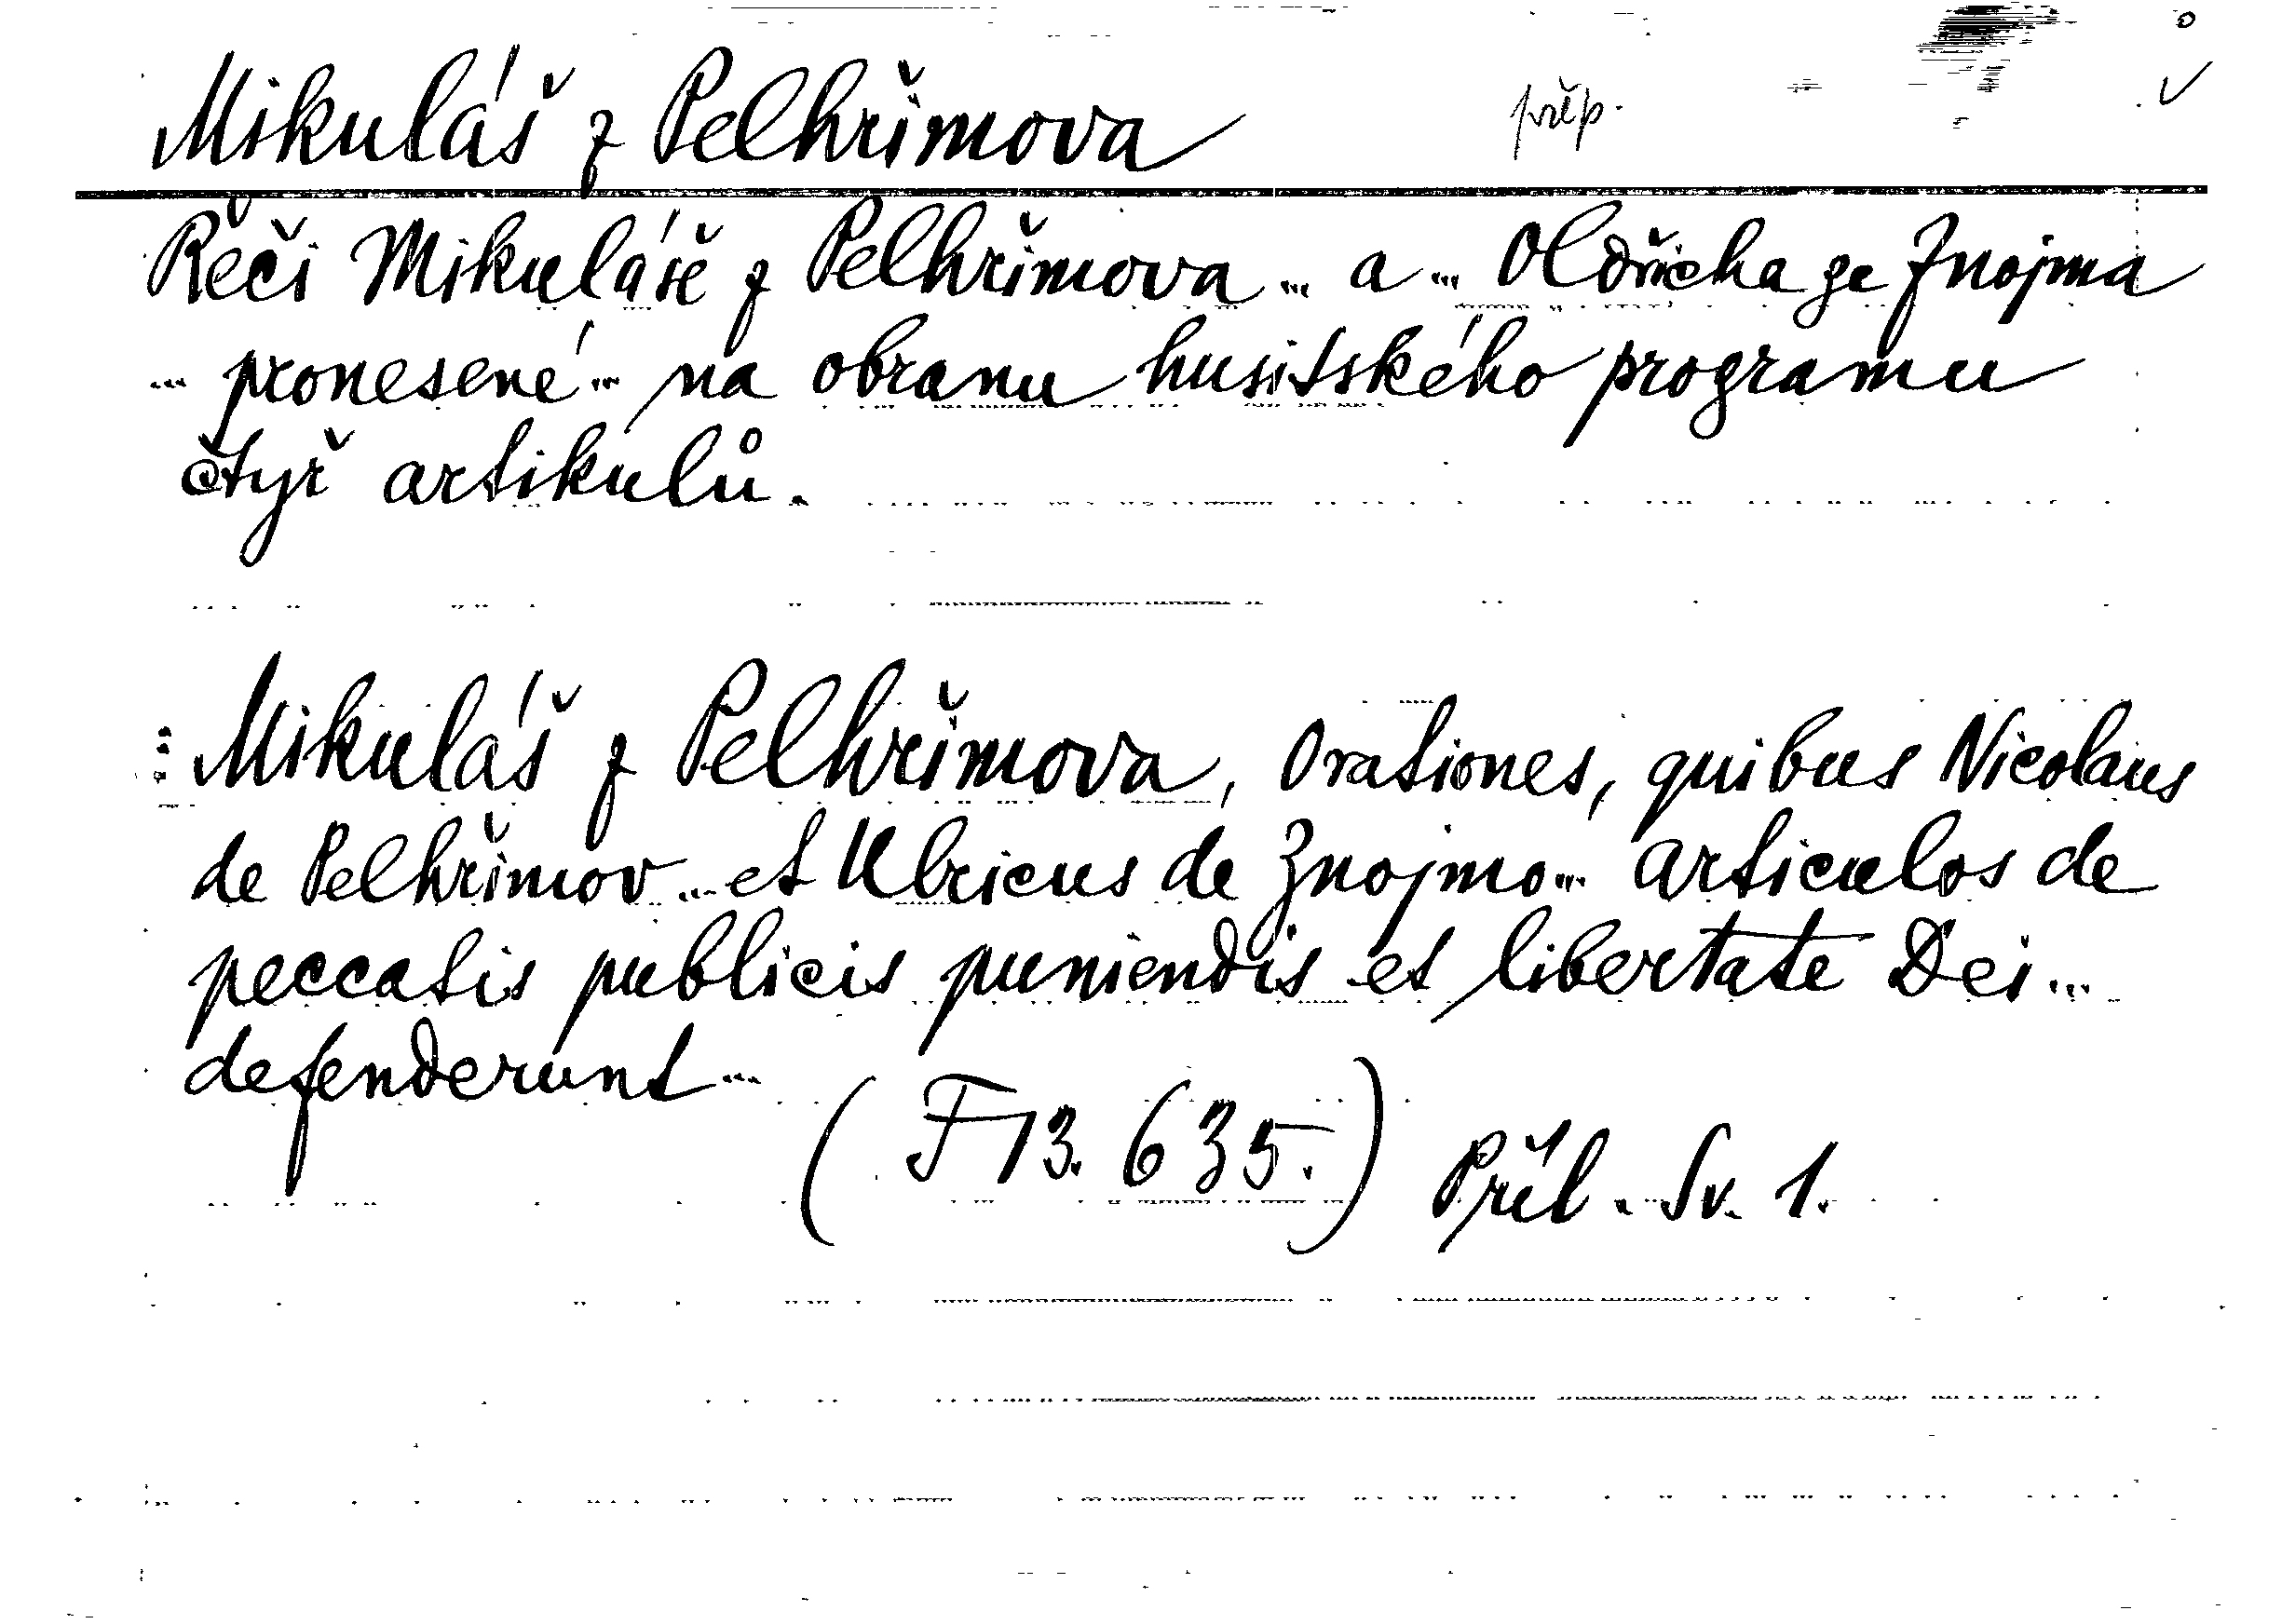 Mikuláš z Pelhřimova přep.
Řeči Mikuláše z Pelhřimova ... a ... Oldřicha ze Znojma
... pronesené ... na obranu husitského programu
čtyř artikulů.
: Mikuláš z Pelhřimova, Orationes, quibus Nicolaus
de Pelhřimov ... et Ulricus de Znojmo ... articulos de
peccatis publicis puniendis et libertate Dei ...
defenderunt ...
(F 13. 635.) Příl. Sv. 1.